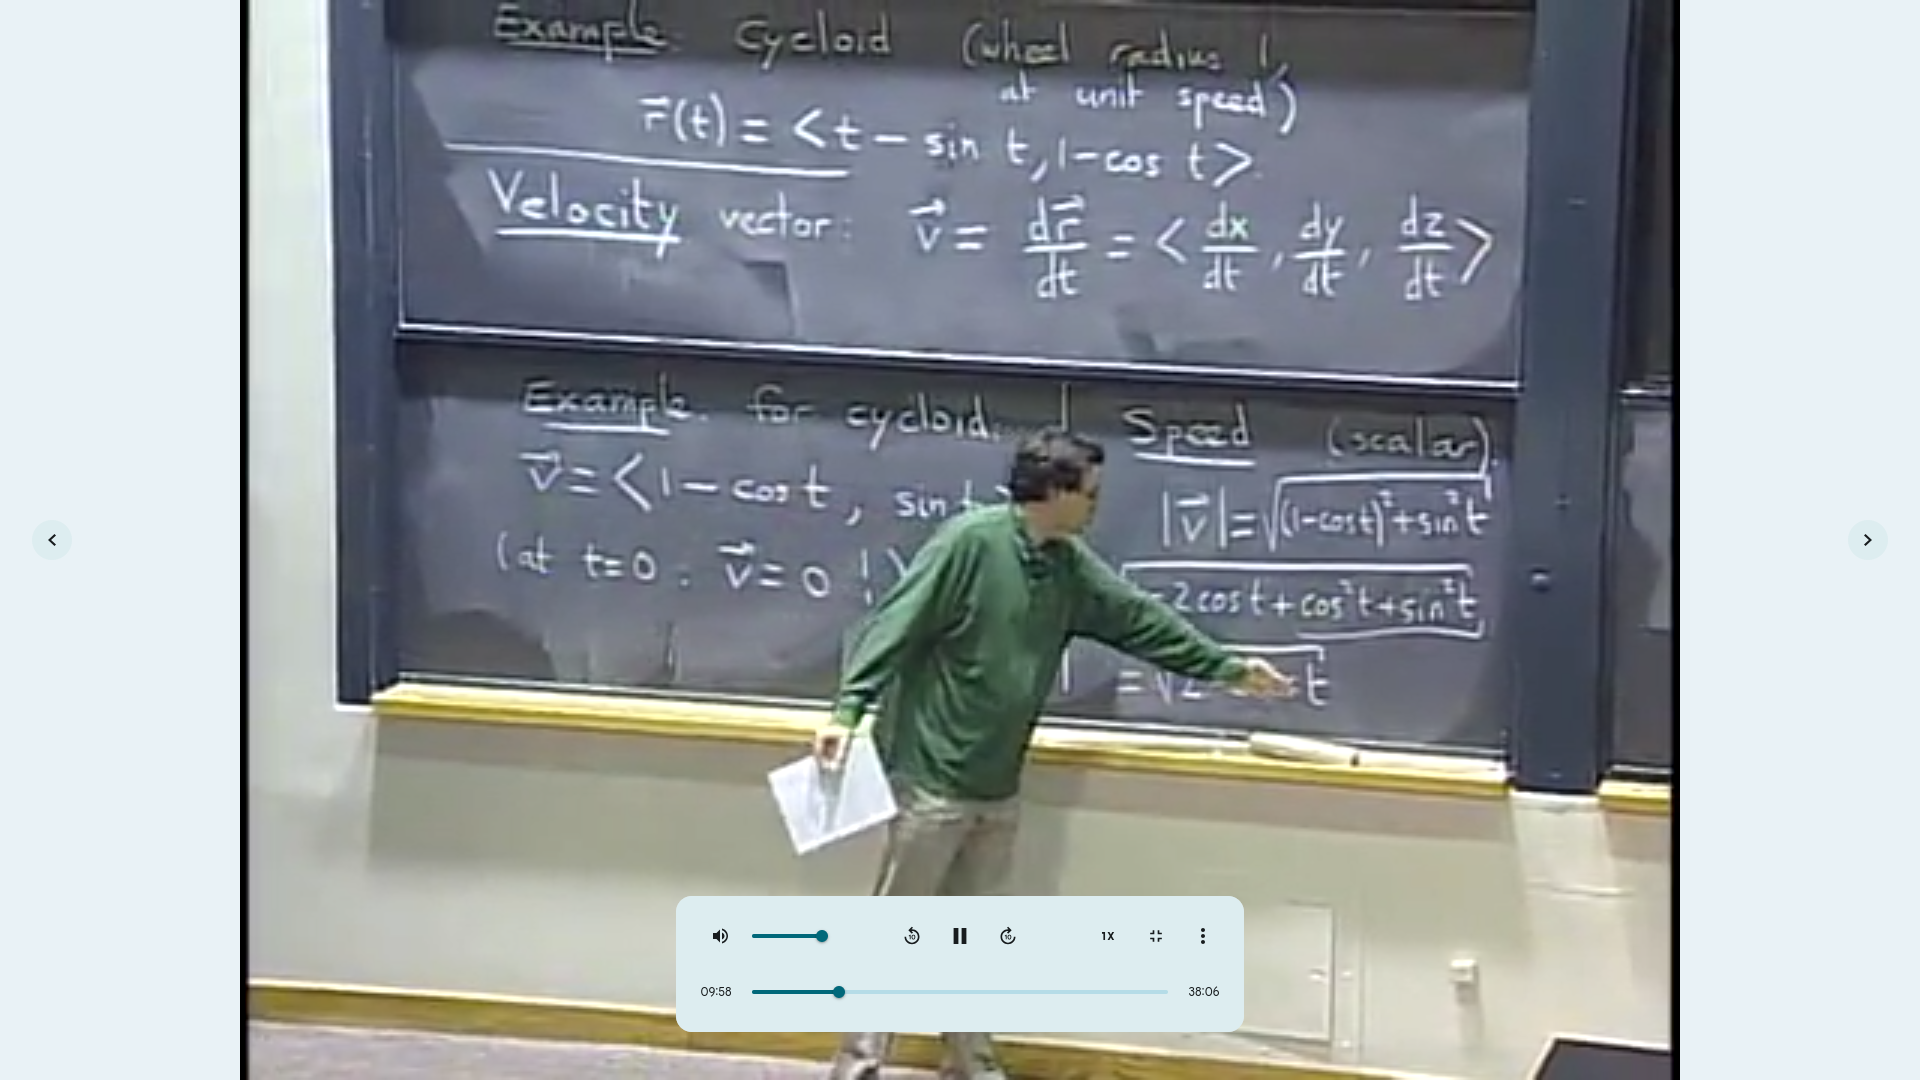 Example. Cycloid (wheel radius 1,
at unit speed)
r⃗(t) = <t − sin t, 1−cos t>.
Velocity vector: v⃗ = dr⃗/dt = <dx/dt, dy/dt, dz/dt>
Example. for cycloid.
v⃗ = <1 − cos t, sin t>
(at t=0 : v⃗ = 0 !)
Speed (scalar).
|v⃗| = √(1−cos t)²+sin²t
2cos t + cos²t + sin²t
= √2 t
1X
09:58
38:06